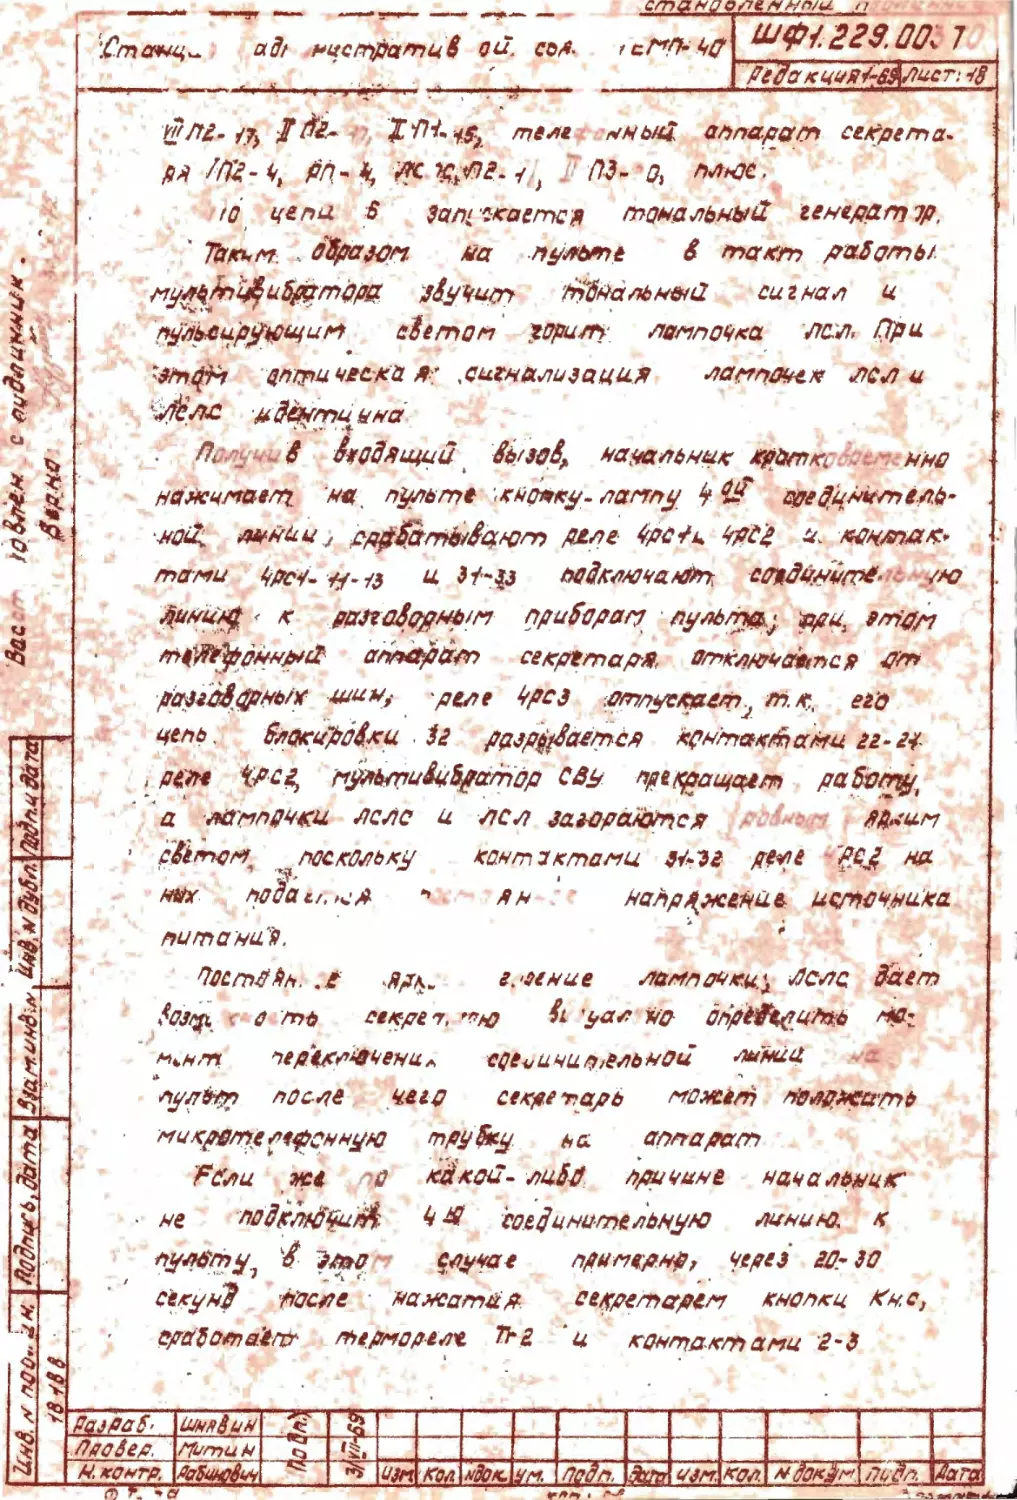 ШФ1.229.003 ТО
Редакция 1-69 Лист: 18
VII П2-17, II П2- II П1-15, аппарат секрета-
ря П2-4, РП-4, П3-0, плюс.
цепи 6 тональный генератор.
Таким образом на пульте в такт работы
мультивибратора звучит тональный сигнал и
пульсирующим светом горит лампочка лсл. При
этом оптическая сигнализация лампочек лсл и
лслс идентична
Получив входящий вызов, начальник кратковременно
нажимает на пульте кнопку-лампу 4ой соединитель-
ной линии, срабатывают реле 4рс1 и 4рс2 и контак-
тами 4рс1-11-13 и 31-33 подключают соединительную
линию к разговорным приборам пульта; при этом
телефонный аппарат секретаря отключается от
разговорных шин; реле 4рс3 отпускает, т.к. его
цепь блокировки 32 разрывается контактами 22-24
реле 4рс2, мультивибратор СВУ прекращает работу,
а лампочки лслс и лсл загораются ровным ярким
светом, поскольку контактами 31-32 реле рс2 на
них подается напряжение источника
питания.
лампочки лслс дает
секретарю визуально определить мо-
мент переключения соединительной линии на
пульт после чего секретарь может положить
микротелефонную трубку на аппарат
Если же по какой-либо причине начальник
не подключит 4ю соединительную линию к
пульту, в этом случае примерно, через 20-30
секунд после нажатия секретарем кнопки Кнс,
сработает термореле Тг2 и контактами 2-3
Восст ювлен с подлинник.
Верно
Инв. N подлин. Подпись, дата Взам. инв. N Инв. N дубл. Подп. и дата
18188
Разраб. Шнявин 31/VII-69
Провер. Митин
Н. контр. Рабинович
Подп.
Изм. Кол. N док. Ум. Подп. Дата Изм. Кол. N док. Ум. Подп. Дата